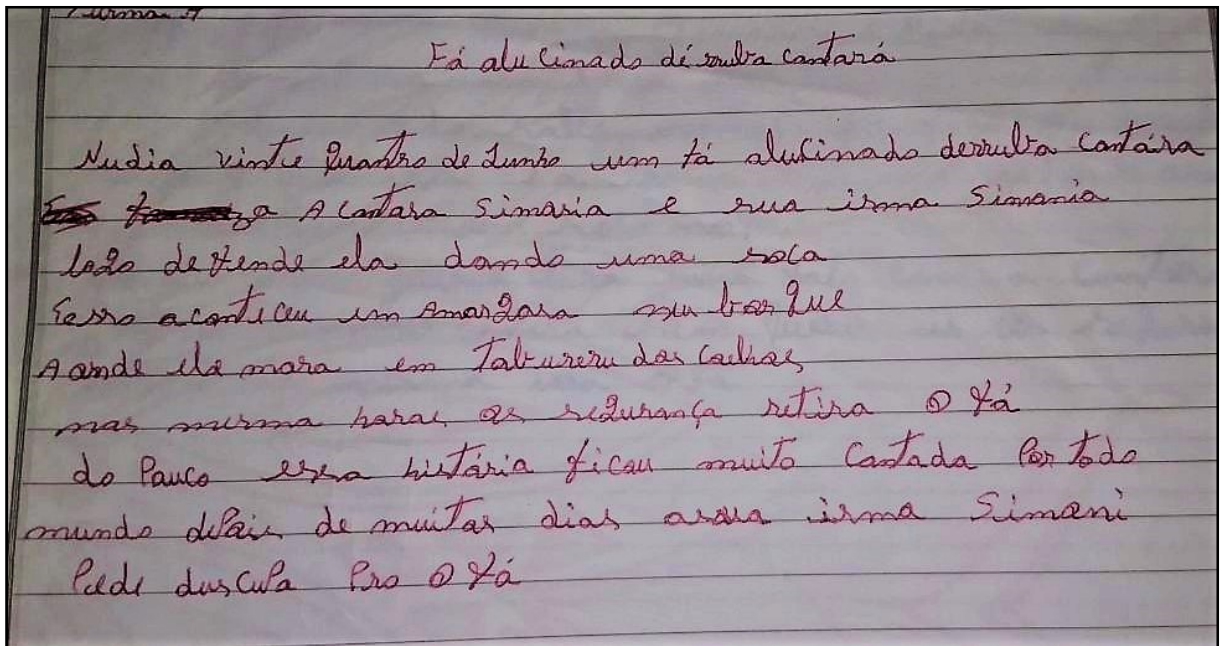 Turma A
Fá alucinado dé rruba cantará
Nudia vinte quantro de Junho um fá alucinado derruba cantára
A cantara Simaria e sua irma Simania
logo defende ela dando uma soca
Eesso aconticeu im Amargara no bosque
Aonde ela mora em Tabureru das
mas mesma haras os segurança retira o fá
do Pauco essa histária ficou muito Contada Por todo
mundo dePois de muitas dias assua irma Simani
Pede duscuPa Pro o fá